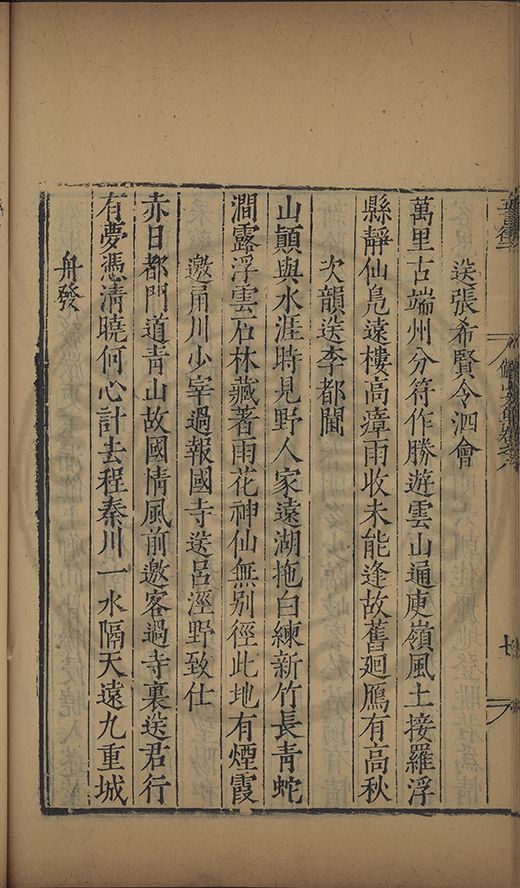 送張希賢令泗會
萬里古端州分符作勝遊雲山通庾嶺風土接羅浮
縣靜仙凫遠樓高瘴雨收未能逢故舊廻鴈有高秋
次韻送李都閫
山顛與水涯時見野人家遠湖拖白練新竹長青蛇
澗露浮雲石林藏著雨花神仙無别徑此地有煙霞
邀甬川少宰過報國寺送呂涇野致仕
赤日都門道青山故國情風前邀客過寺裏送君行
有夢憑清曉何心計去程秦川一水隔天遠九重城
舟發
七